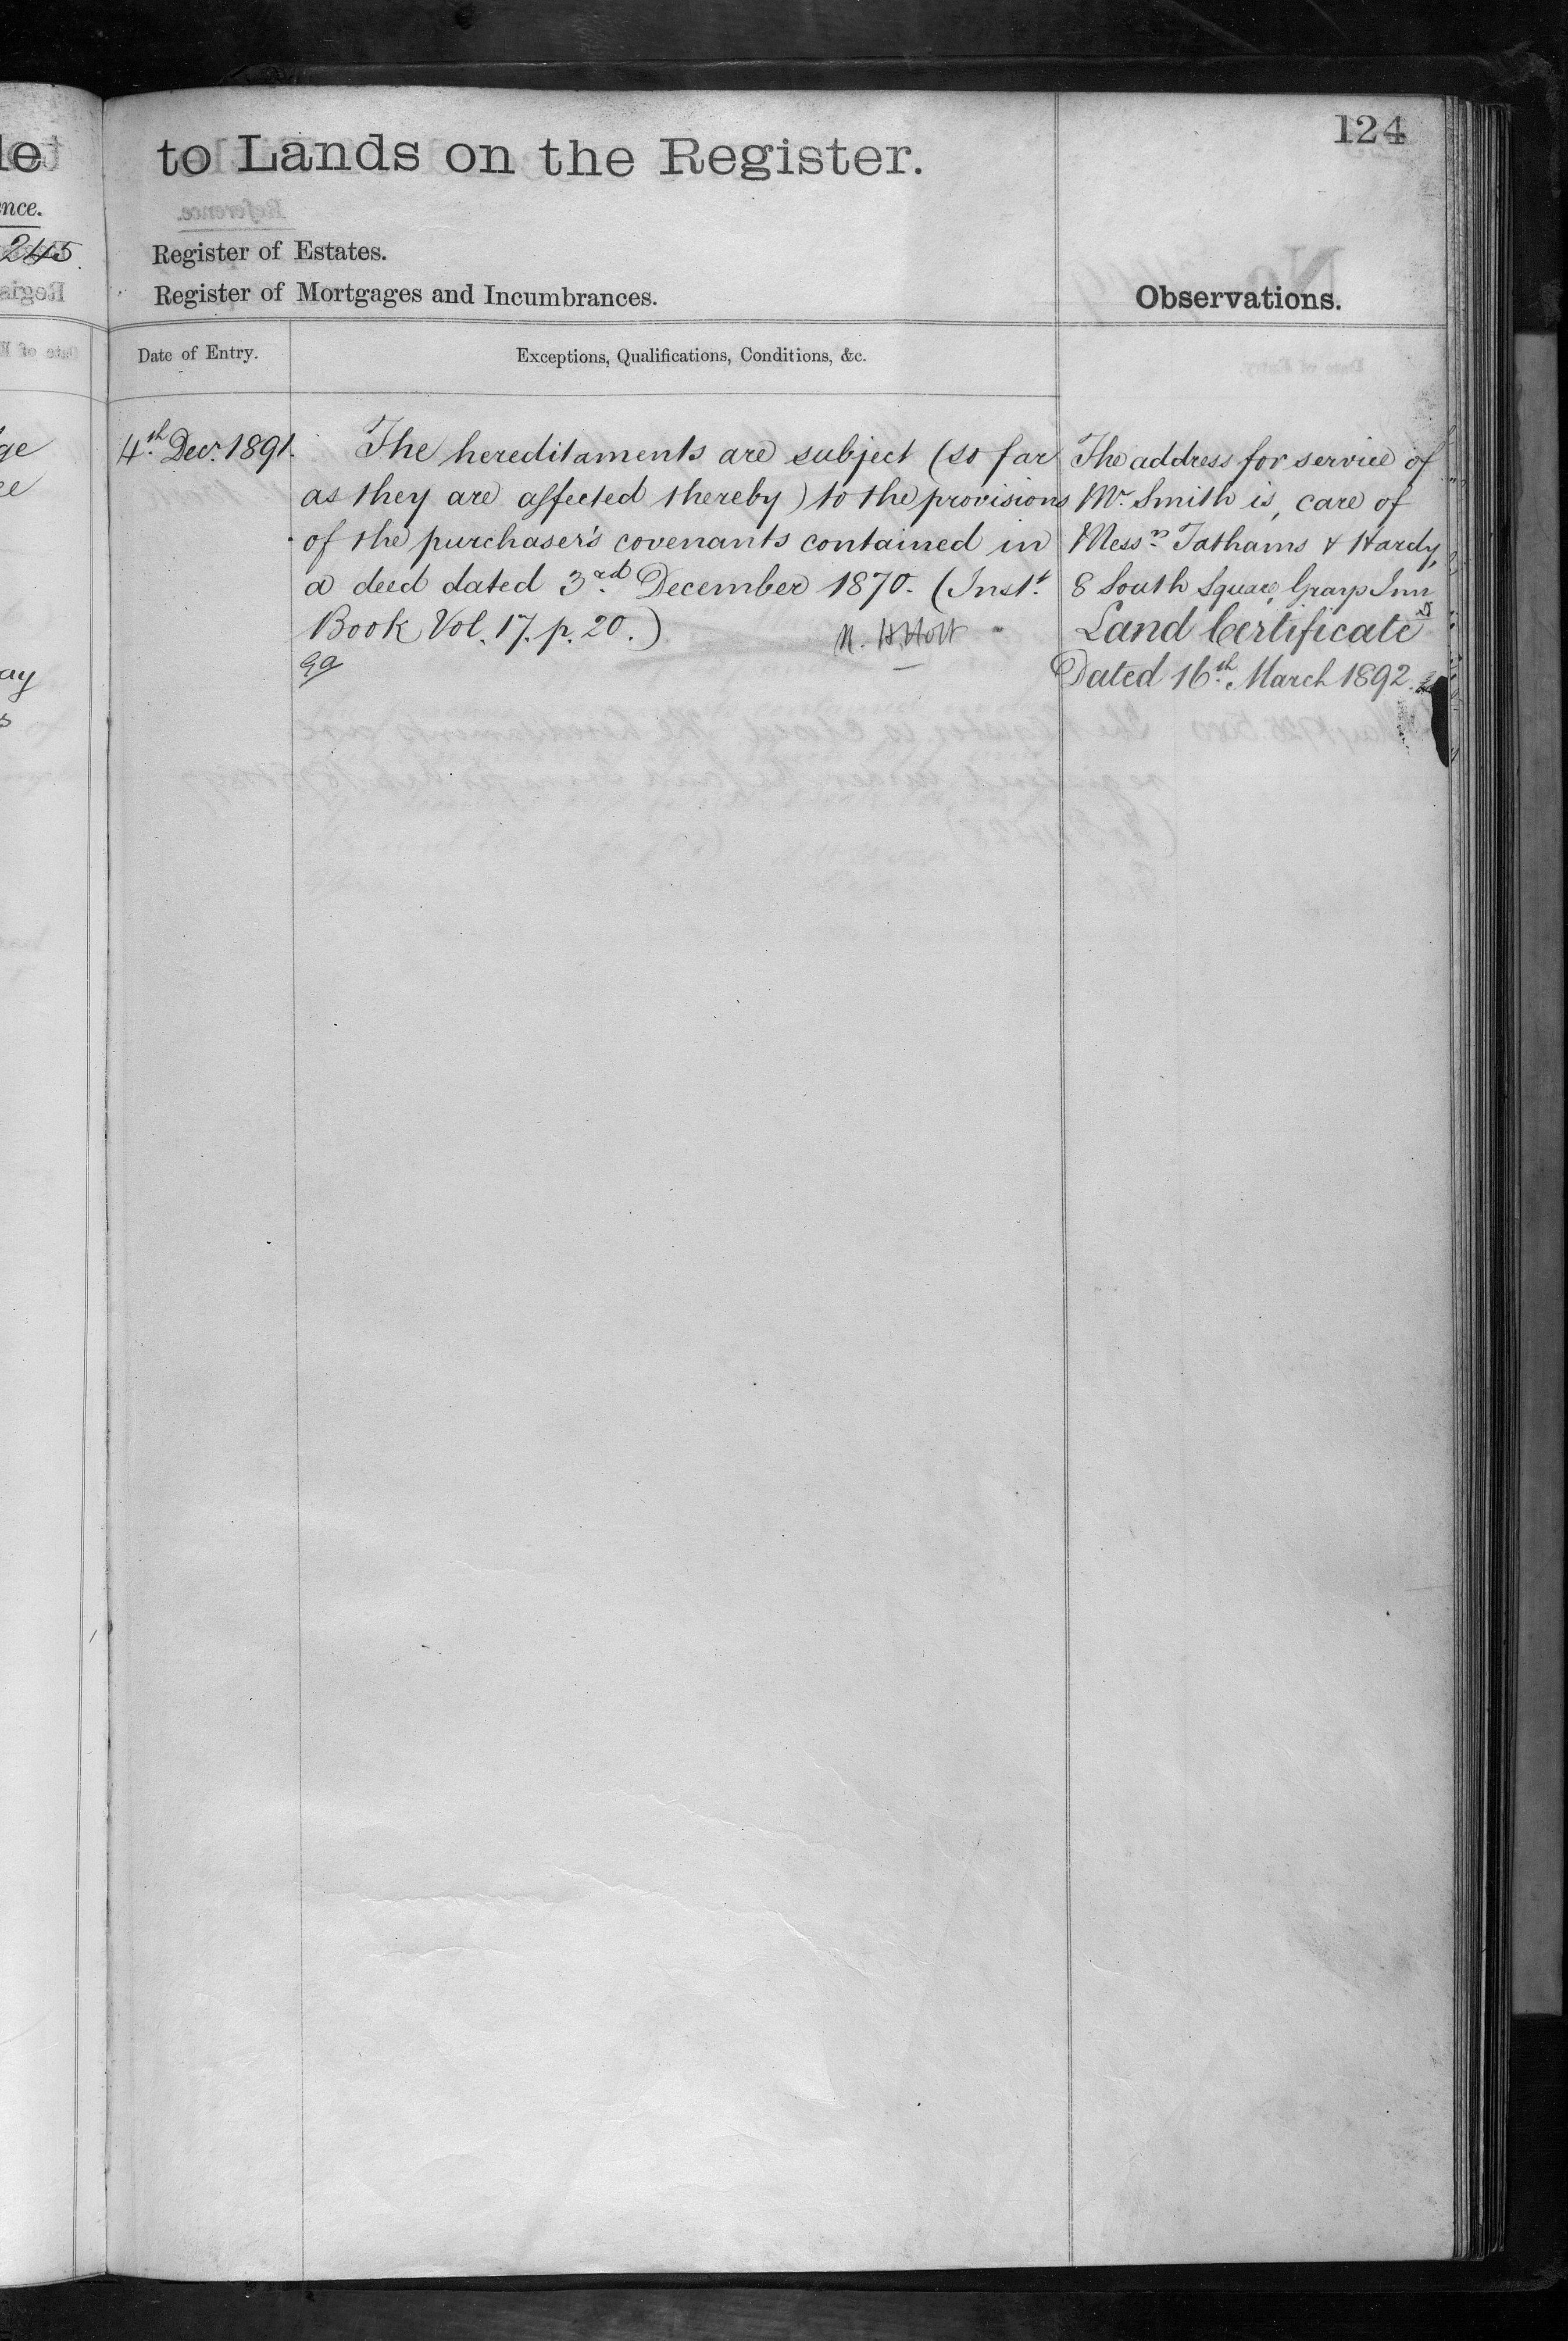 124
to Lands on the Register.
Register of Estates.
Register of Mortgages and Incumbrances.
Observations.
Date of Entry.
Exceptions, Qualifications, Conditions, &c.
4th Decr. 1891.
The hereditaments are subject (so far
as they are affected thereby) to the provisions
of the purchaser's covenants contained in
a deed dated 3rd December 1870. (Inst.
Book Vol. 17. p. 20.)
The address for service of
Mr. Smith is, care of
Messrs Tathams & Hardy,
8 South Square, Grays Inn
Land Certificate
Dated 16th March 1892.
le
nce.
245
ge
ay